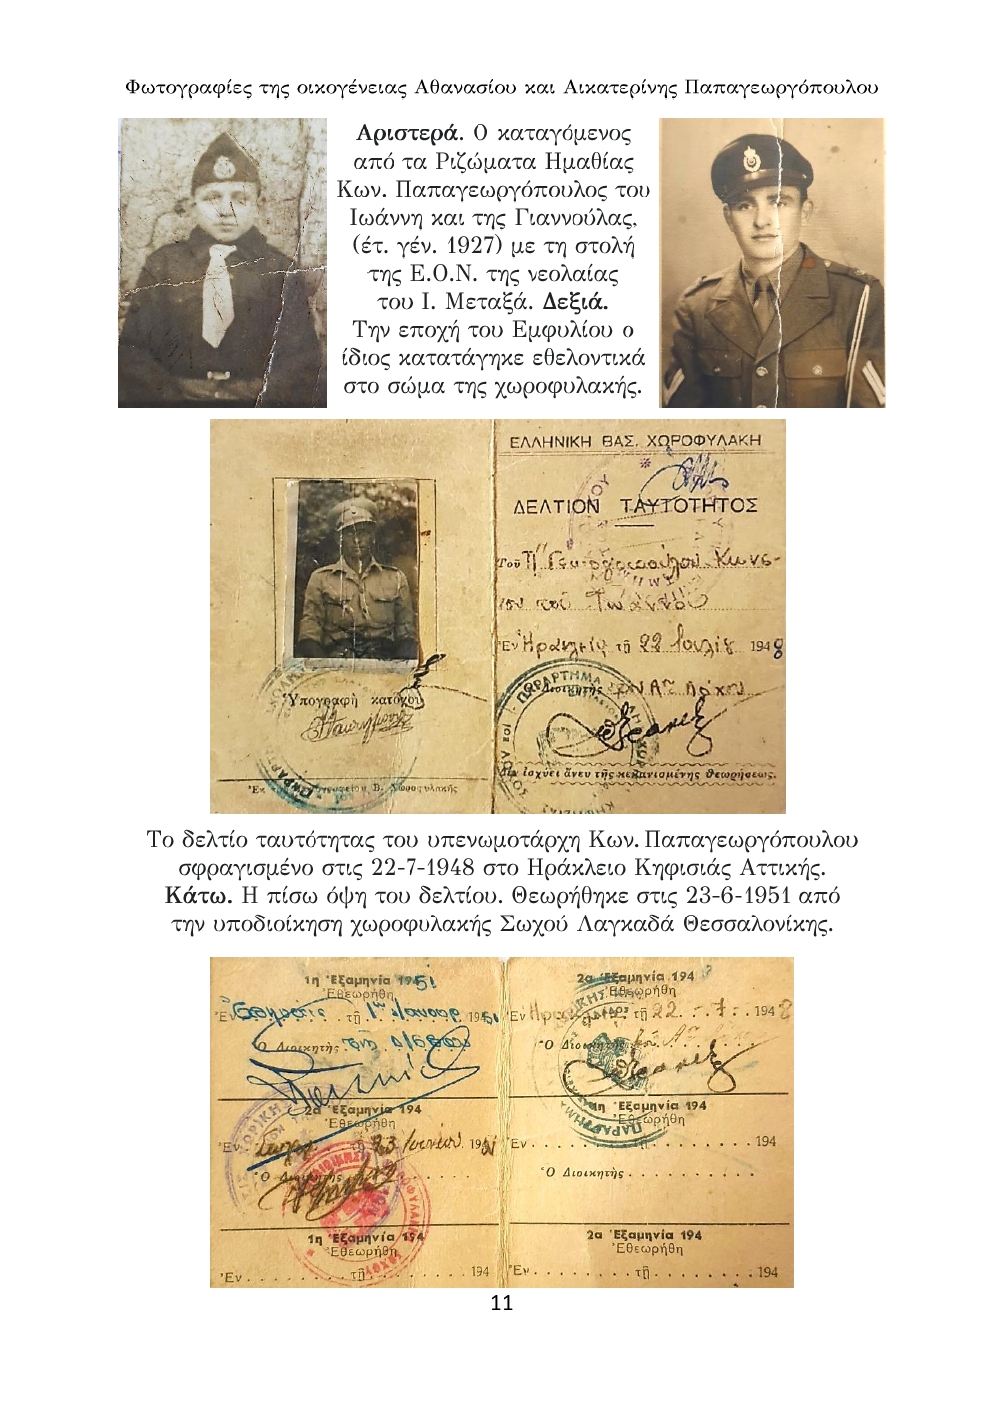 Φωτογραφίες της οικογένειας Αθανασίου και Αικατερίνης Παπαγεωργόπουλου
Αριστερά. Ο καταγόμενος
από τα Ριζώματα Ημαθίας
Κων. Παπαγεωργόπουλος του
Ιωάννη και της Γιαννούλας,
(έτ. γέν. 1927) με τη στολή
της Ε.Ο.Ν. της νεολαίας
του Ι. Μεταξά. Δεξιά.
Την εποχή του Εμφυλίου ο
ίδιος κατατάγηκε εθελοντικά
στο σώμα της χωροφυλακής.
ΕΛΛΗΝΙΚΗ ΒΑΣ. ΧΩΡΟΦΥΛΑΚΗ
ΔΕΛΤΙΟΝ ΤΑΥΤΟΤΗΤΟΣ
Τοῦ
τοῦ Ἰωάννου
Ἐν Ἡρακλείῳ τῇ 22 Ἰουλίου 1948
Διοικητής
ΠΑΡΑΡΤΗΜΑ
Ὑπογραφὴ κατόχου
Δὲν ἰσχύει ἄνευ τῆς κεκανισμένης θεωρήσεως.
Το δελτίο ταυτότητας του υπενωμοτάρχη Κων. Παπαγεωργόπουλου
σφραγισμένο στις 22-7-1948 στο Ηράκλειο Κηφισιάς Αττικής.
Κάτω. Η πίσω όψη του δελτίου. Θεωρήθηκε στις 23-6-1951 από
την υποδιοίκηση χωροφυλακής Σωχού Λαγκαδά Θεσσαλονίκης.
1η Ἐξαμηνία 1951
Ἐθεωρήθη
Ἐν τῇ 1951
Ὁ Διοικητὴς
2α Ἐξαμηνία 194
Ἐθεωρήθη
Ἐν τῇ 23 Ἰουνίου 1951
Ὁ Διοικητής
1η Ἐξαμηνία 194
Ἐθεωρήθη
Ἐν τῇ 194
2α Ἐξαμηνία 194
Ἐθεωρήθη
Ἐν τῇ 22 . 7 . 1948
Ὁ Διοικητὴς
1η Ἐξαμηνία 194
Ἐθεωρήθη
Ἐν 194
Ὁ Διοικητὴς
ΠΑΡΑΡΤΗΜΑ
2α Ἐξαμηνία 194
Ἐθεωρήθη
Ἐν τῇ 194
11